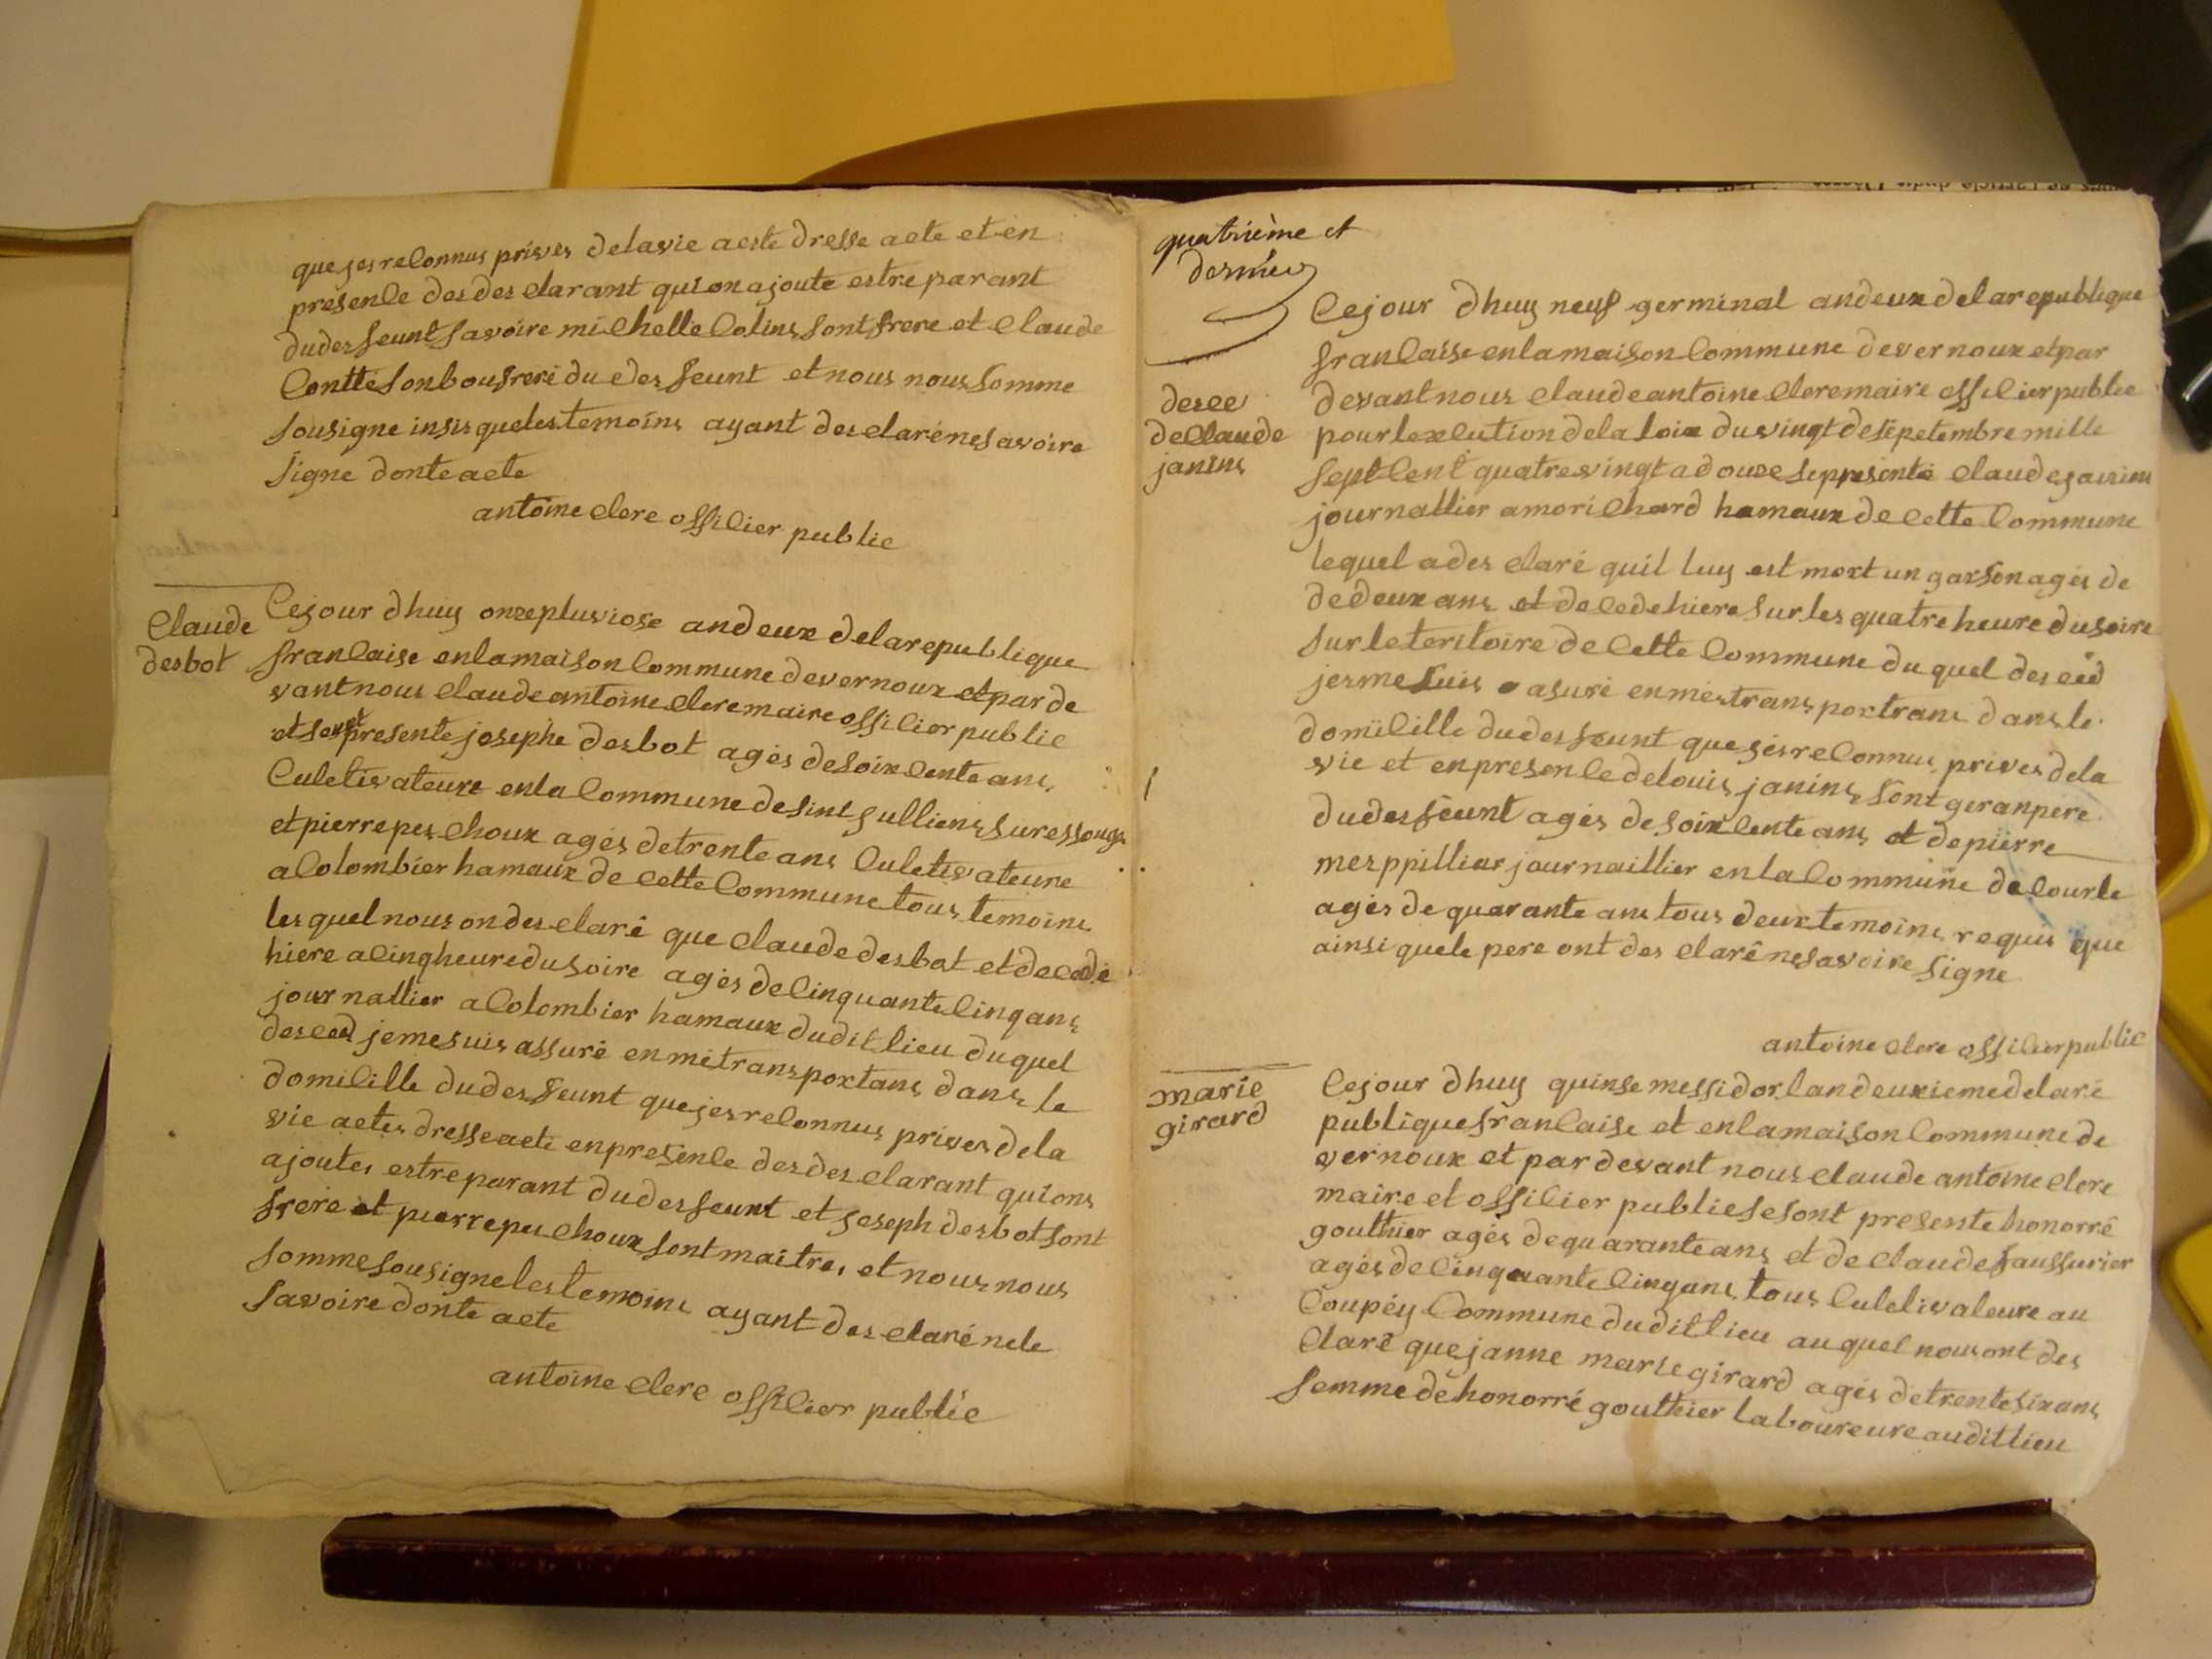 que jes reconnus prives delavie aeste dresse acte et en
présence des des clarant qui on ajoute estre parant
dudes feunt savoire michelle Colins sont frere et claude
Conttesonboufrere du des feunt et nous nous somme
sousigne insis queles temoins ayant des clarénesavoire
signe donte acte
antoine clere officier public
Claude
desbot
Cejour dhuy onze pluviose andeux delarepublique
francaise enlamaison Commune devernoux et par de
vant nous claude antoine clere maire officier public
et sest presente josephe desbot ages desoixcente ans
Culetivateure enla Commune de sint julliens suressouge
et pierre peschoux agés detrente ans Culetivateure
a Colombier hamaux de cette Commune tous temoins
lesquel nous on des claré que claude desbot et decedé
hiere acinq heure dusoire agés decinquante cinq ans
journallier a Colombier hamaux dudit lieu duquel
desced jemesuis assuré enmétransportans dans le
domicille dudesfeunt quejesreconnus prives dela
vie actes dresse acte enpresence desdes clarant quions
ajoutes estreparant dudesfeunt et joseph desbot sont
frere et pierre peschoux sont maitres et nous nous
somme sousigne les temoins ayant des claré nele
savoire donte acte
antoine clere officier public
quatrième et
dernier
decee
de Claude
janins
Cejour dhuy neuf germinal andeux delarepublique
francaise enlamaison Commune devernoux et par
devant nous claude antoine clere maire officier public
pour lexcution dela loix duvingt desepetembre mille
sept cent quatrevingt adouze sepresenté claude janins
journallier amorichard hamaux de cette Commune
lequel ades claré quil luy est mort un garson agés de
dedeux ans et decede hiere sur les quatre heure dusoire
sur leteritoire de Cette Commune du quel desced
jesme suis asuré enmestransportrans dans le
domicille dudesfeunt que jesreconnus prives dela
vie et enpresence delouis janins sont geranpere
dudesfeunt agés desoixcente ans et depierre
mesppillier journaillier enla Commune decourle
agés de quarante ans tous deux temoins requis que
ainsi quele pere ont des claré nesavoire signe
antoine clere officier public
marie
girard
Cejour dhuy quinse messidor landeuxieme delaré
publique francaise et enlamaison Commune de
vernoux et par devant nous claude antoine clere
maire et officier public se sont presente honorré
gouthier agés de quarante ans et de claude faussurier
agés de cinquante cinq ans tous Culetivateure au
Coupéy Commune dudit lieu auquel nous ont des
claré que janne marie girard agés detrente six ans
femme de honorré gouthier laboureure audit lieu